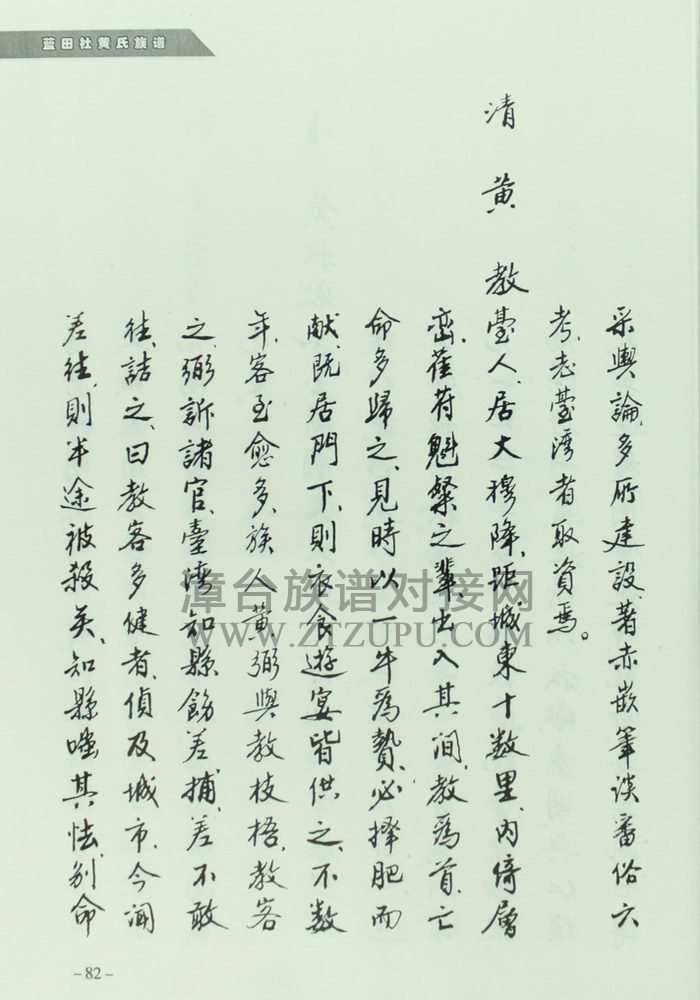 蓝田社黄氏族谱
采輿論多所建設著赤嵌筆談番俗六
考志臺湾者取資焉。
清黄教臺人居大穆降距城東十数里内倚層
巒萑苻魁桀之輩出入其间教爲首亡
命多歸之見時以一牛爲贄必擇肥而
献既居門下則衣食遊宴皆供之不数
年客至愈多族人黄弼與教枝梧教客
之弼訴諸官臺湾知縣飭差捕差不敢
往詰之曰教客多健者偵及城市今闻
差往則半途被殺矣知縣嗤其怯别命
漳台族谱对接网
WWW.ZTZUPU.COM
-82-